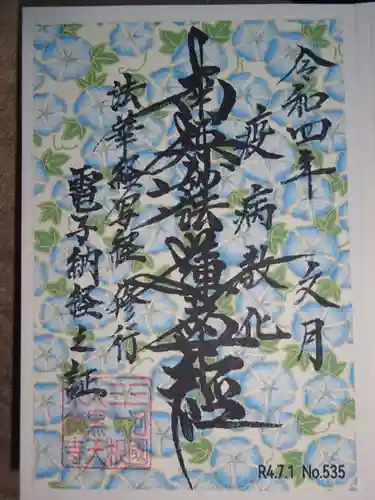 令和四年
文月
疫病散化
南無妙法蓮華経
法華経写経修行
電子納経之証
R4.7.1 No.535